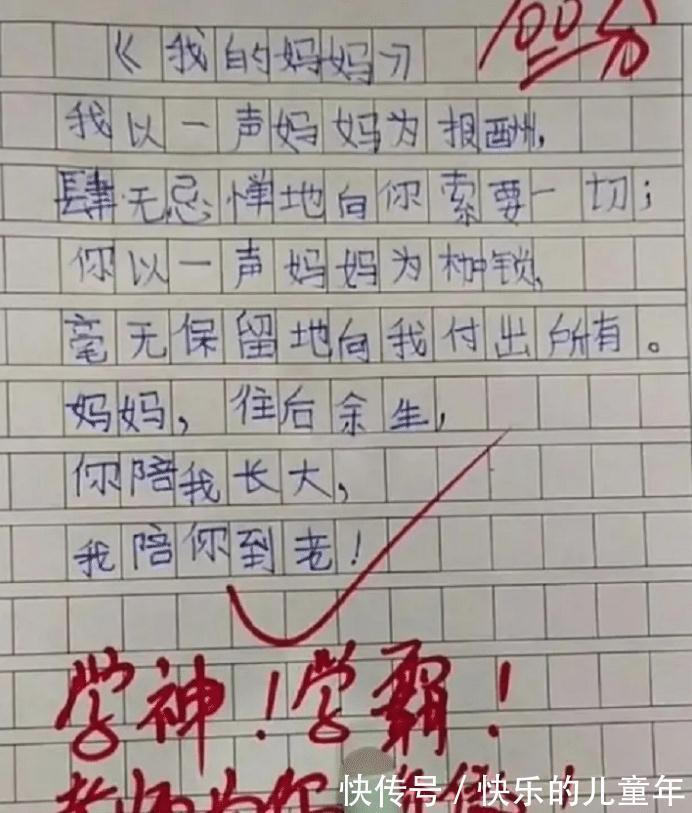 100分
《我的妈妈》
我以一声妈妈为报酬,
肆无忌惮地向你索要一切;
你以一声妈妈为枷锁,
毫无保留地向我付出所有。
妈妈,往后余生,
你陪我长大,
我陪你到老!
学神!学霸!
老师为你
快传号/快乐的儿童年